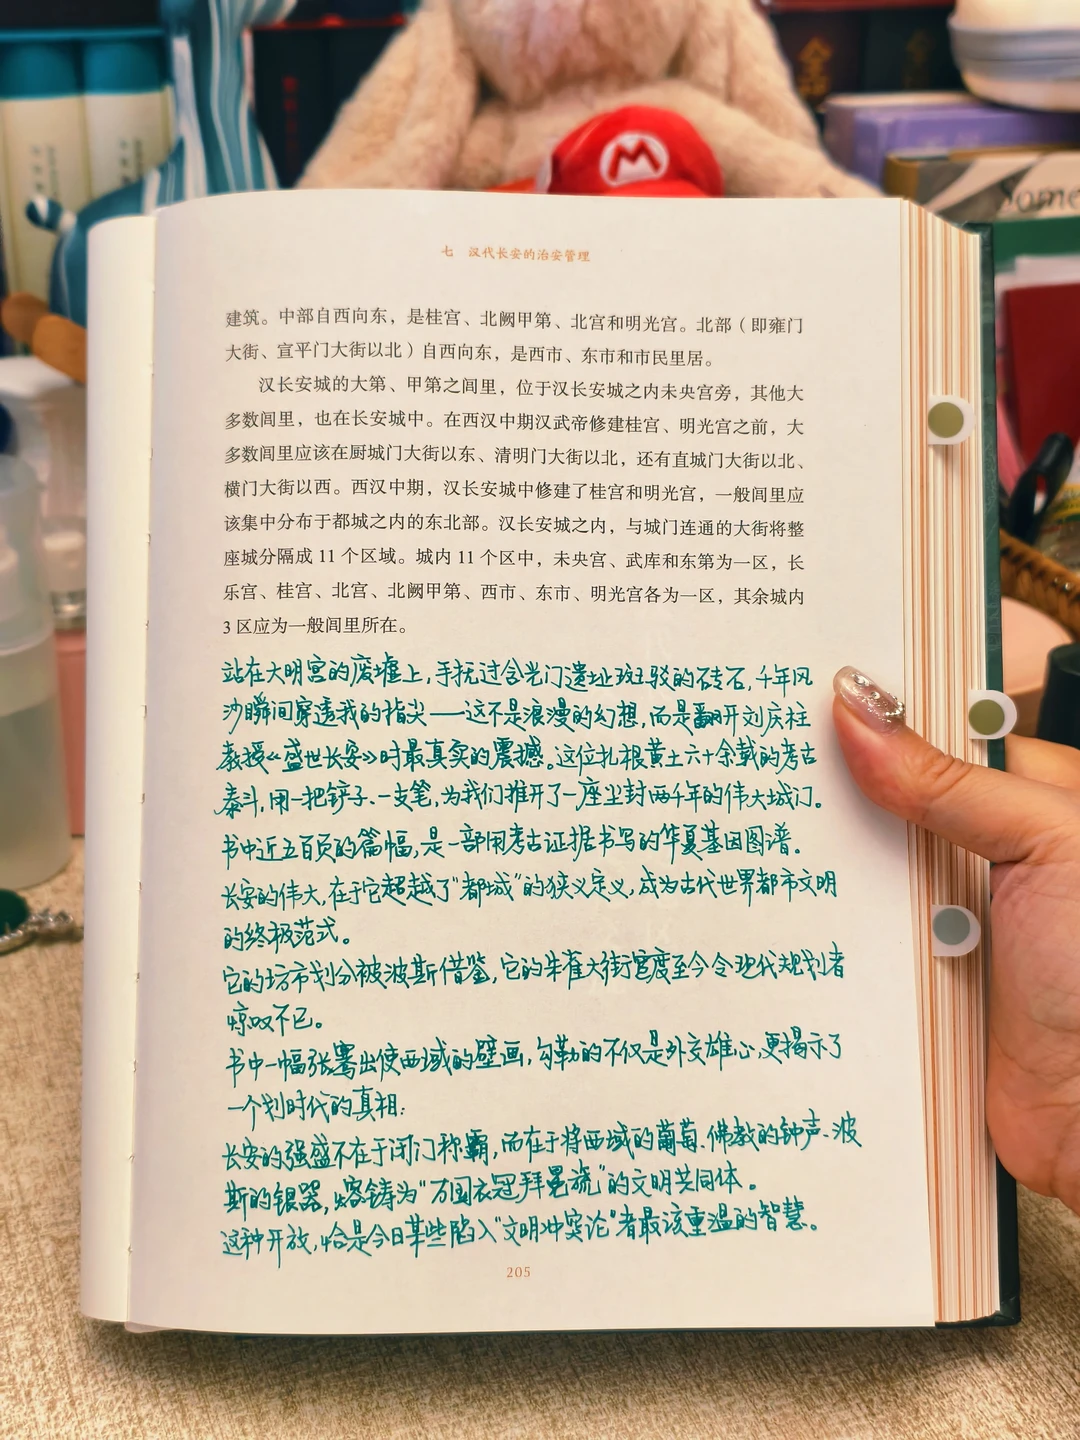 Some
七 汉代长安的治安管理
建筑。中部自西向东，是桂宫、北阙甲第、北宫和明光宫。北部（即雍门
大街、宣平门大街以北）自西向东，是西市、东市和市民里居。
汉长安城的大第、甲第之闾里，位于汉长安城之内未央宫旁，其他大
多数闾里，也在长安城中。在西汉中期汉武帝修建桂宫、明光宫之前，大
多数闾里应该在厨城门大街以东、清明门大街以北，还有直城门大街以北、
横门大街以西。西汉中期，汉长安城中修建了桂宫和明光宫，一般闾里应
该集中分布于都城之内的东北部。汉长安城之内，与城门连通的大街将整
座城分隔成 11 个区域。城内 11 个区中，未央宫、武库和东第为一区，长
乐宫、桂宫、北宫、北阙甲第、西市、东市、明光宫各为一区，其余城内
3 区应为一般闾里所在。
站在大明宫的废墟上，手抚过含光门遗址斑驳的砖石，千年风
沙瞬间穿透我的指尖——这不是浪漫的幻想，而是翻开刘庆柱
教授《盛世长安》时最真实的震撼。这位扎根黄土六十余载的考古
泰斗，用一把铲子、一支笔，为我们推开了一座尘封两千年的伟大城门。
书中近五百页的篇幅，是一部用考古证据书写的华夏基因图谱。
长安的伟大，在于它超越了“都城”的狭义定义，成为古代世界都市文明
的终极范式。
它的坊市划分被波斯借鉴，它的朱雀大街宽度至今令现代规划者
惊叹不已。
书中一幅张骞出使西域的壁画，勾勒的不仅是外交雄心，更揭示了
一个划时代的真相：
长安的强盛不在于闭门称霸，而在于将西域的葡萄、佛教的钟声、波
斯的银器，熔铸为“万国衣冠拜冕旒”的文明共同体。
这种开放，恰是今日某些陷入“文明冲突论”者最该重温的智慧。
205